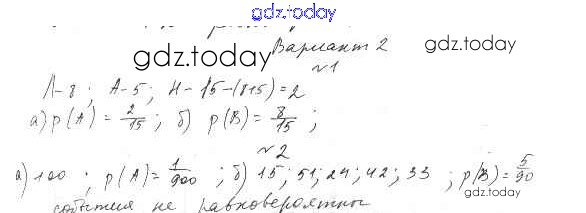 gdz.today
Вариант 2
gdz.today gdz.today
№1
Л-8; А-5; Н-15-(8+5)=2
а) p(A) = 2/15; б) p(B) = 8/15;
№2
а) 100; p(A) = 1/900; б) 15; 51; 24; 42; 33; p(B) = 5/90
gdz.today
события не равновероятны